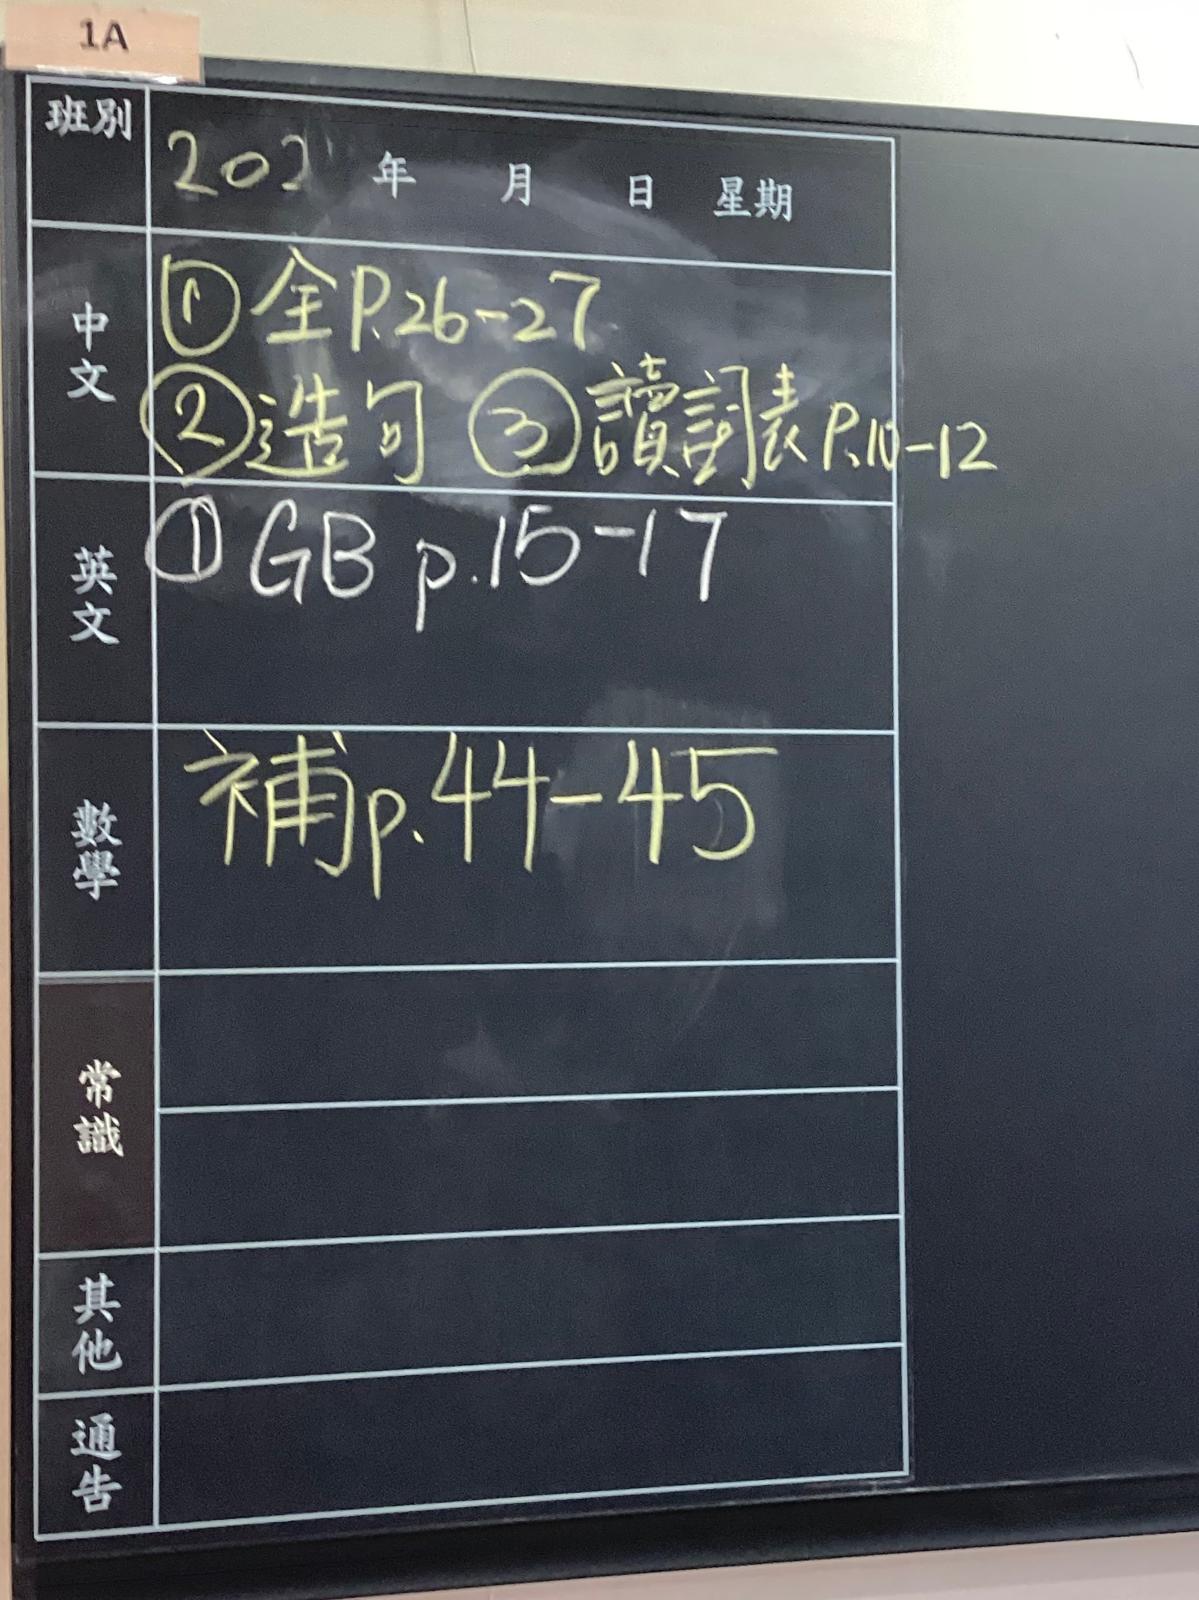 1A
班別
202 年 月 日 星期
中文
① 全P.26-27
② 造句 ③ 讀詞表P.10-12
英文
① GB p.15-17
數學
補p.44-45
常識
其他
通告